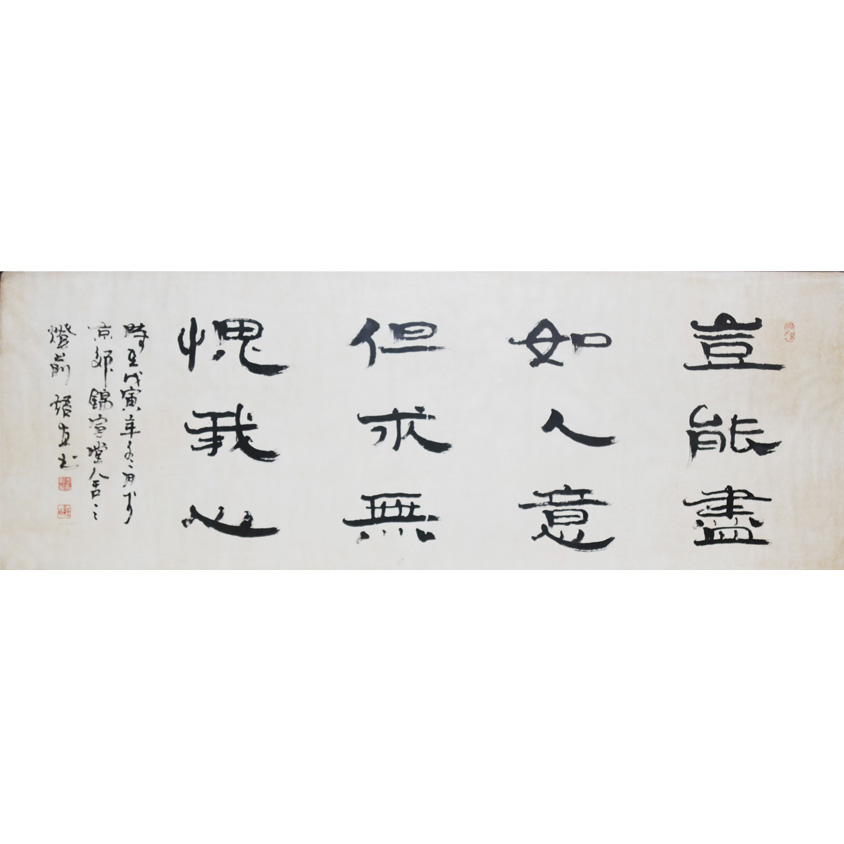 豈能盡
如人意
但求無
愧我心
時在戊寅年冬月於
京郊錦寓瑩舍之
燈前